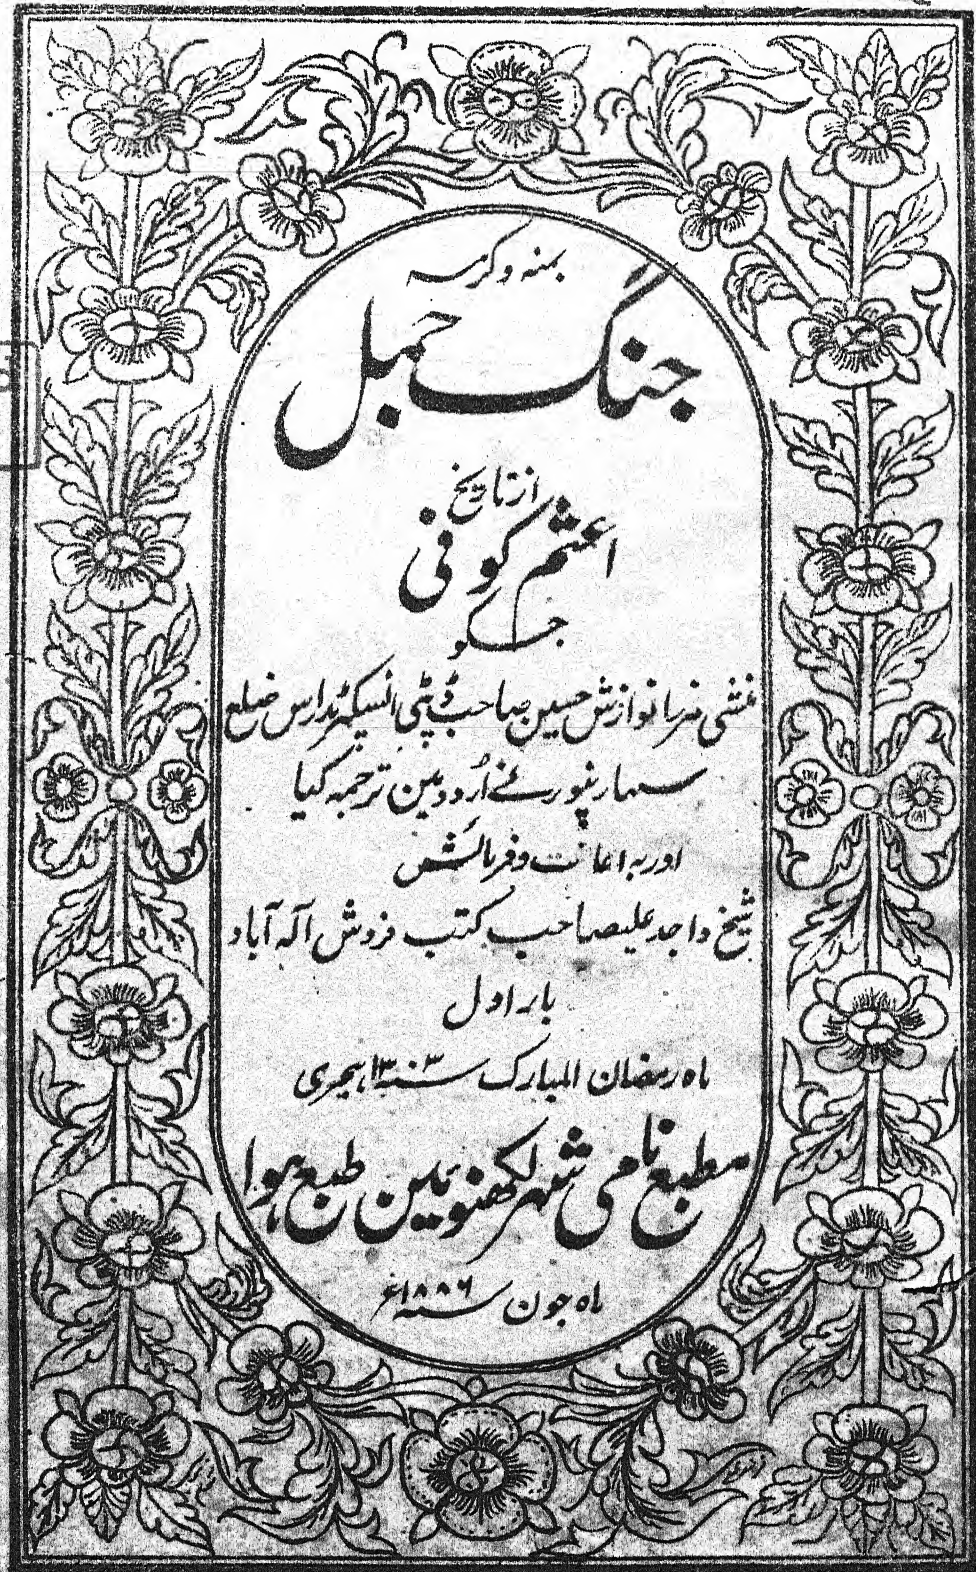 بمنہ وکرمہ
جنگ جمل
از تاریخ
اعثم کوفی
جسکو
منشی مرزا نوازش حسین صاحب ڈپٹی انسپکٹر مدارس ضلع
سہارنپور نے اُردو مین ترجمہ کیا
اور بہ اعانت وفرمائش
شیخ واجد علیصاحب کتب فروش الہ آباد
بار اول
ماہ رمضان المبارک سنہ ۱۳۰۳ ہجری
مطبع نامی شہر لکھنو مین طبع ہوا
ماہ جون سنہ ۱۸۸۶ء